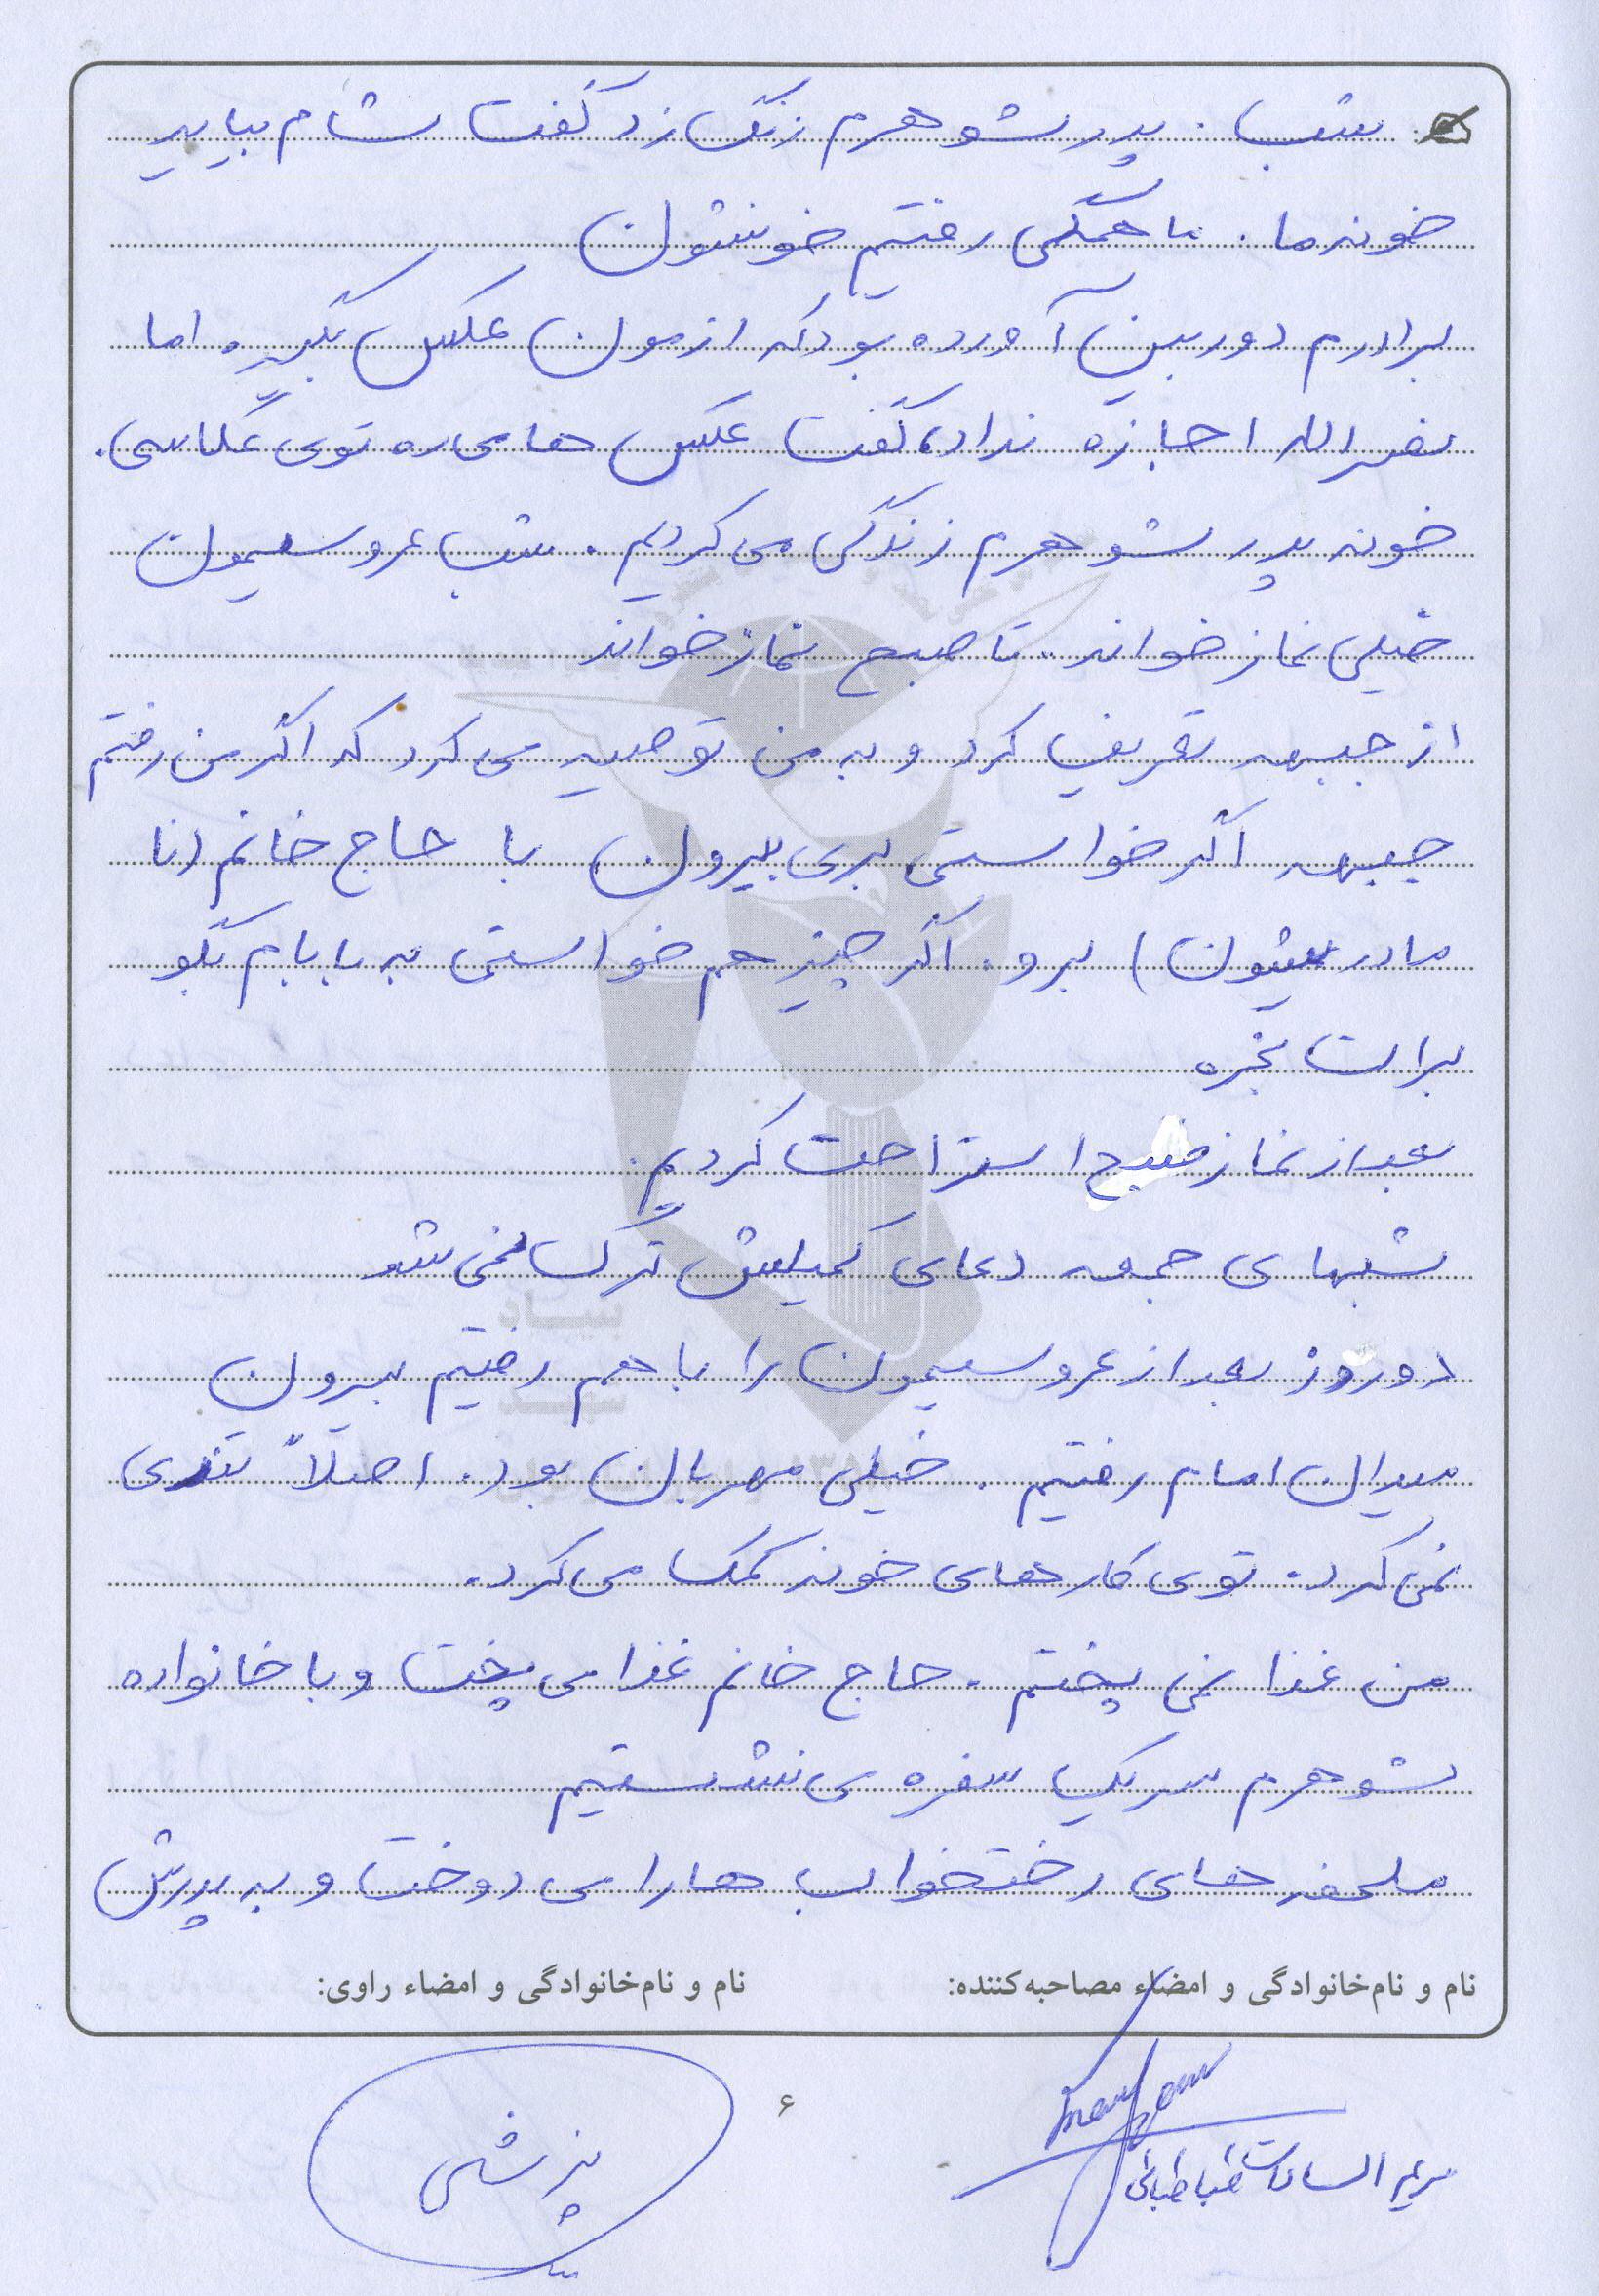 شب. پدر شوهرم زنگ زد گفت شام بیایید
خونه ما. ما همگی رفتیم خونشون
برادرم دوربین آورده بود که ازمون عکس بگیره. اما
نصرالله اجازه نداد، گفت عکس ها می ره توی عکاسی.
خونه پدر شوهرم زندگی می کردیم. شب عروسیمون
خیلی نماز خواند. تا صبح نماز خواند
از جبهه تعریف کرد و به من توصیه می کرد که اگر من رفتم
جبهه اگر خواستی بری بیرون با حاج خانم (نا
مادریشون) برو. اگر چیزهم خواستی به بابام بگو
برات بخره
بعد از نماز صبح استراحت کردیم.
شبهای جمعه دعای کمیلش ترک نمی شد
دو روز بعد از عروسیمون را با هم رفتیم بیرون
میدان امام رفتیم. خیلی مهربان بود. اصلاً تندی
نمی کرد. توی کارهای خونه کمک می کرد.
من غذا نمی پختم. حاج خانم غذا می پخت و با خانواده
شوهرم سر یک سفره می نشستیم
ملحفه های رختخواب ها را می دوخت و به پدرش
نام و نام‌خانوادگی و امضاء مصاحبه‌کننده:
نام و نام‌خانوادگی و امضاء راوی:
۶
مریم السادات طباطبائی